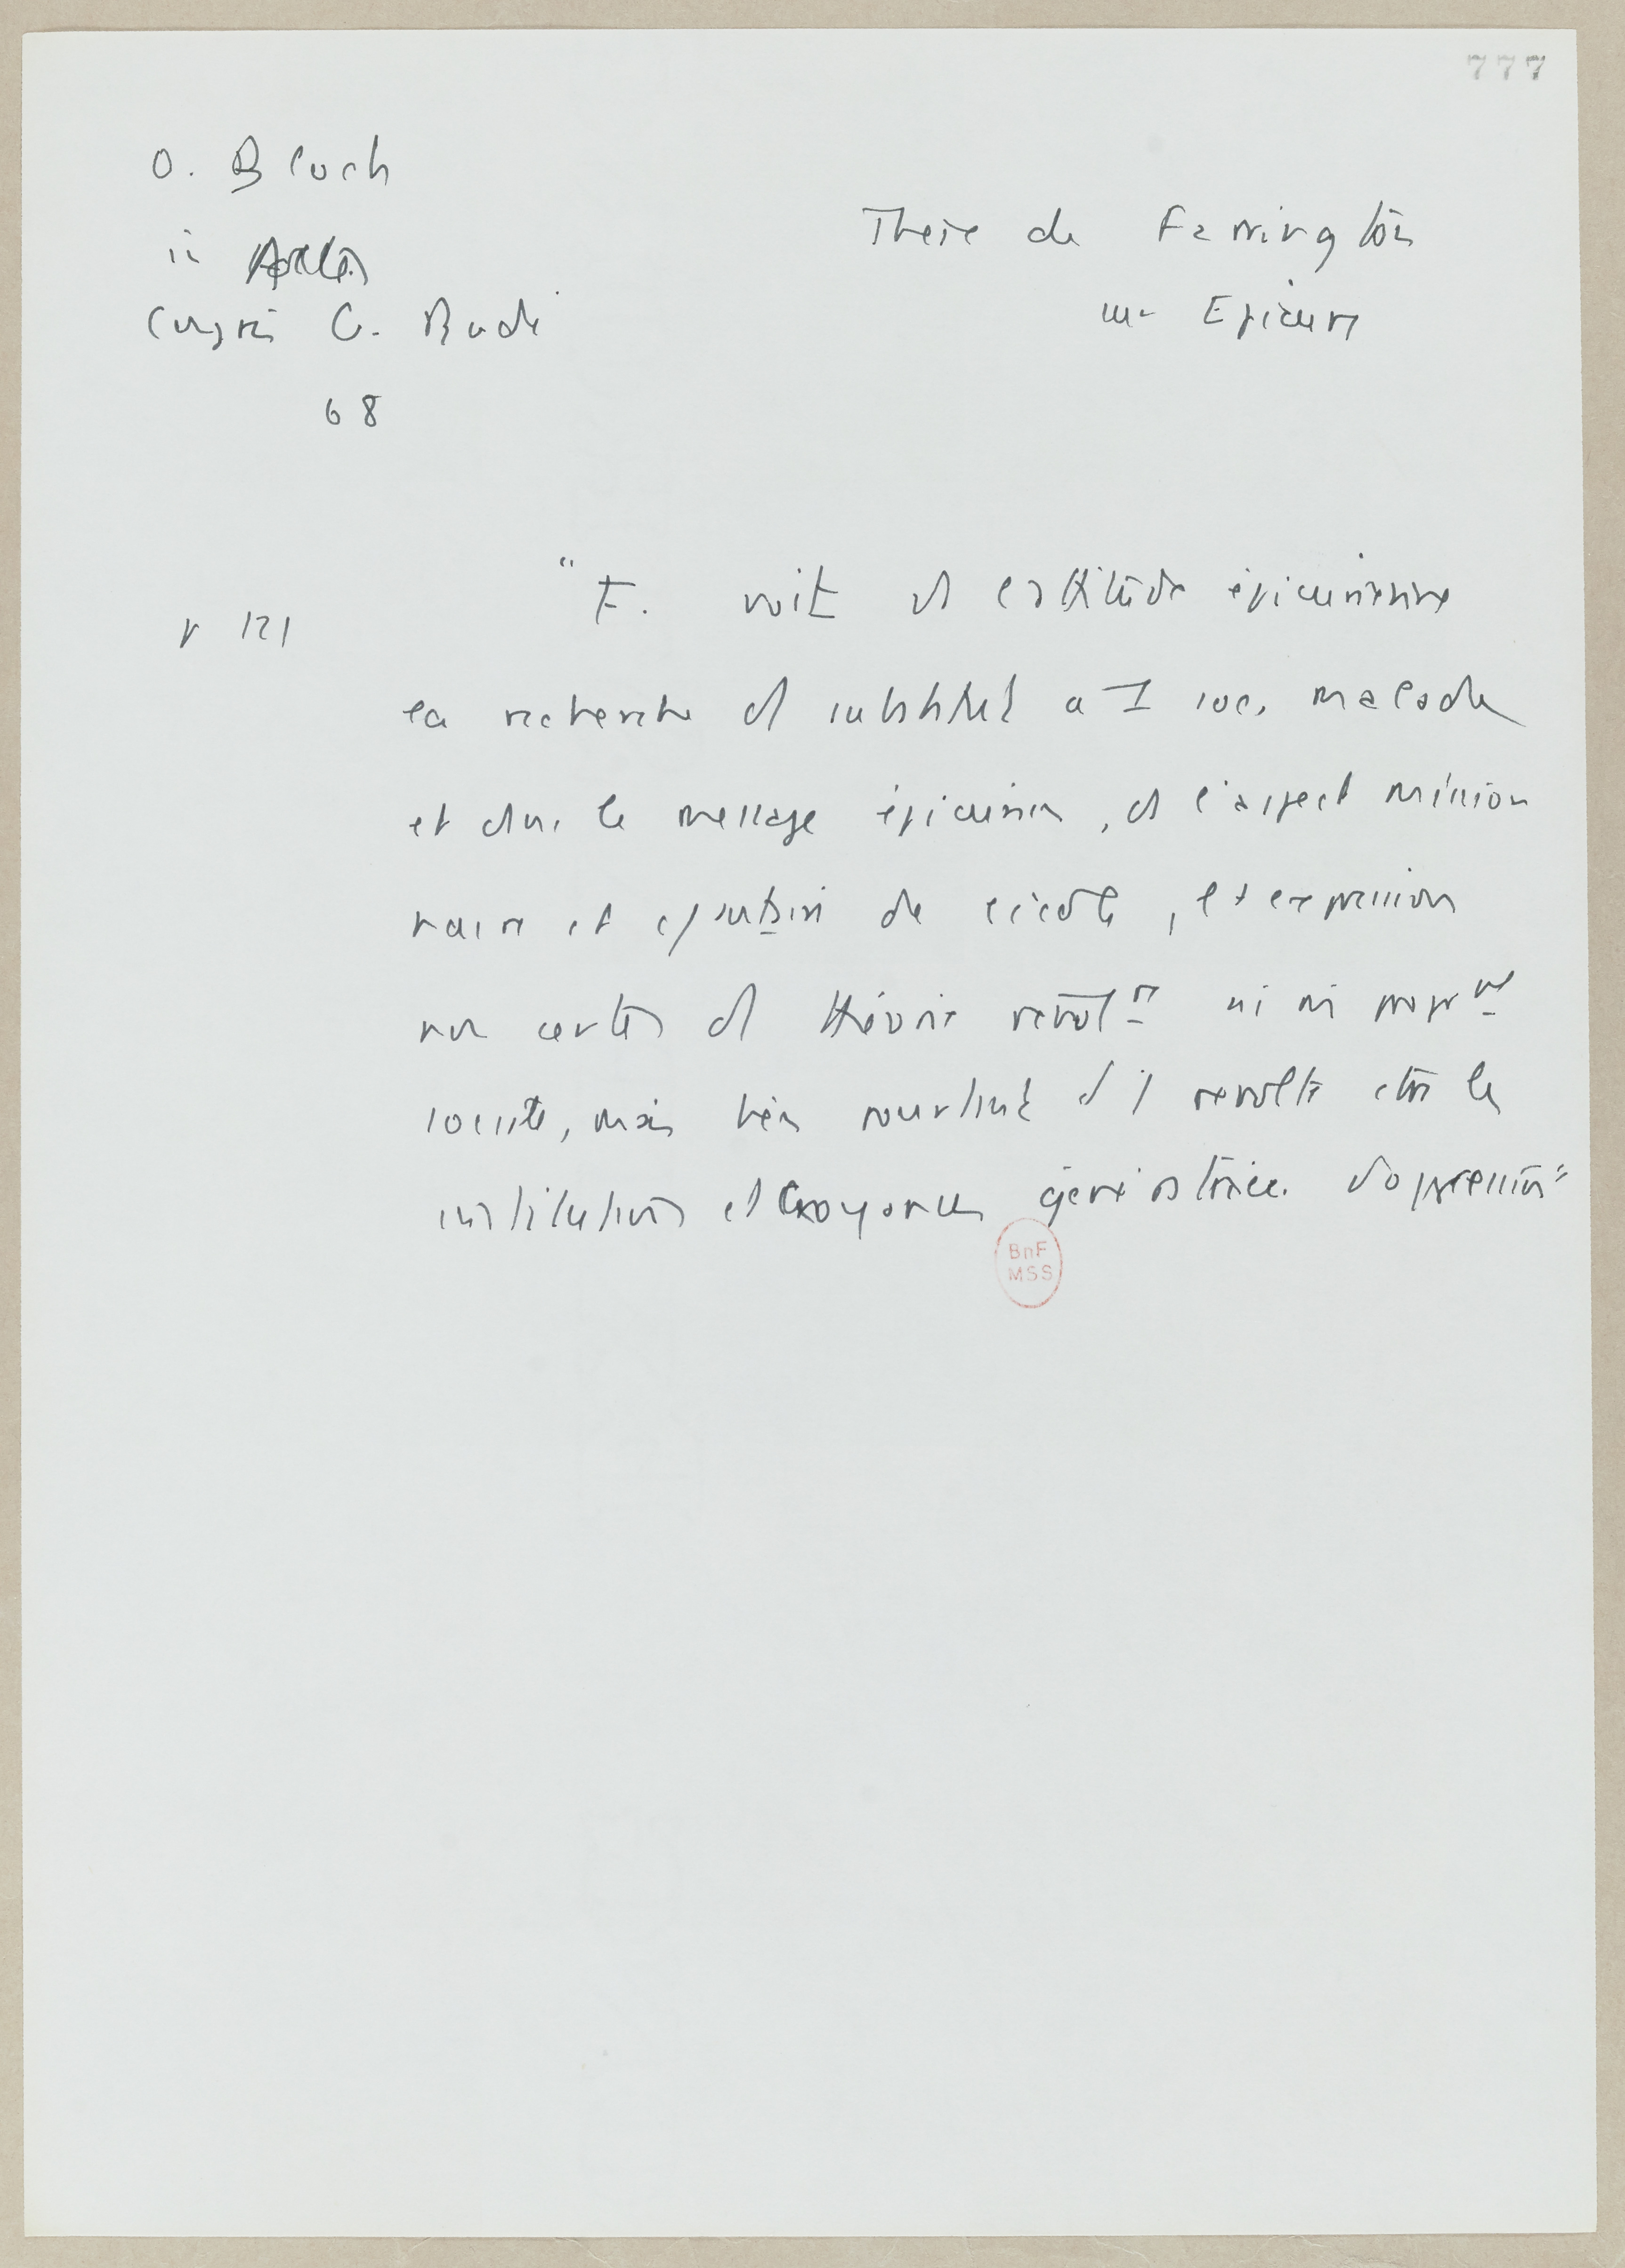 777
O. Bloch
in Actes
Congrès G. Budé
68
Thèse de Farrington
sur Epicure
p 121
"F. voit ds l'attitude épicurienne
la recherche d substitut a 1 soc. malade
et dns le message épicurien, ds l'aspect mission
naire et de l'école, l'expression
non certes d théorie révolre ni mt
société, mais bien d'1 révolte ctre les
institutions et croyances génératrices d'oppression"
BnF
MSS